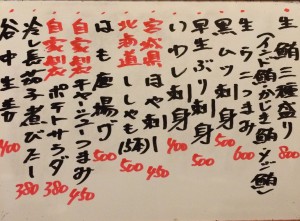 生鮪三種盛り 800
(インド鮪かじき鮪バチ鮪)
生うにつまみ 600
黒ムツ刺身 500
早生ぶり刺身 500
いわし刺身 400
宮城県ほや刺し 450
北海道ししゃも(5本) 500
はも唐揚げ 500
自家製チャーシューつまみ 450
自家製ポテトサラダ 380
冷し長茄子煮びたし 380
谷中生姜 400